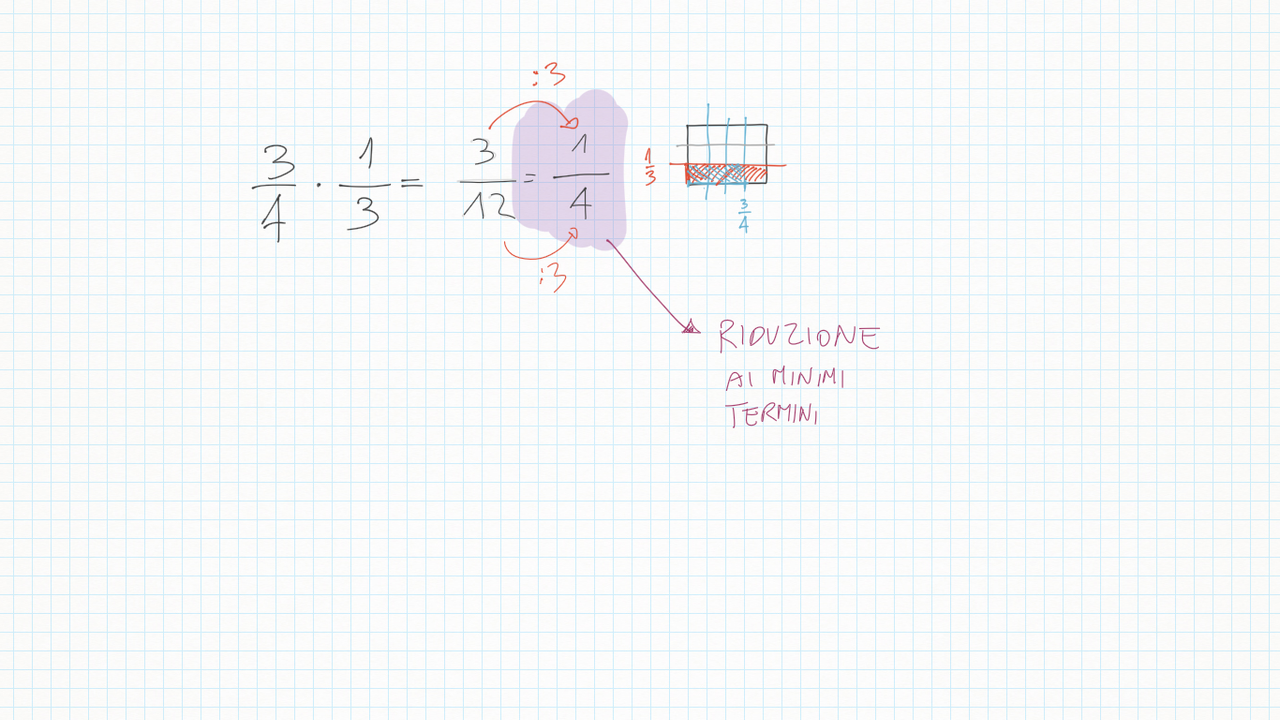 :3
3/4 · 1/3 = 3/12 = 1/4
1/3
3/4
:3
RIDUZIONE
AI MINIMI
TERMINI